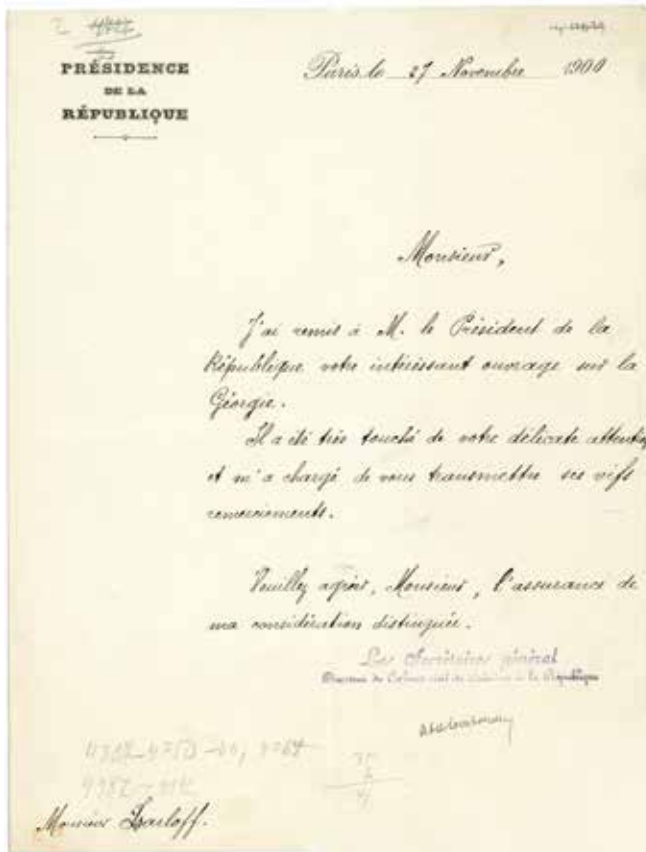 PRÉSIDENCE
DE LA
RÉPUBLIQUE
Paris, le 27 Novembre 1900
Monsieur,
J'ai remis à M. le Président de la
République votre intéressant ouvrage sur la
Géorgie.
Il a été très touché de votre délicate attention
et m'a chargé de vous transmettre ses vifs
remerciements.
Veuillez agréer, Monsieur, l'assurance de
ma considération distinguée.
Le Secrétaire général
de la République
Monsieur